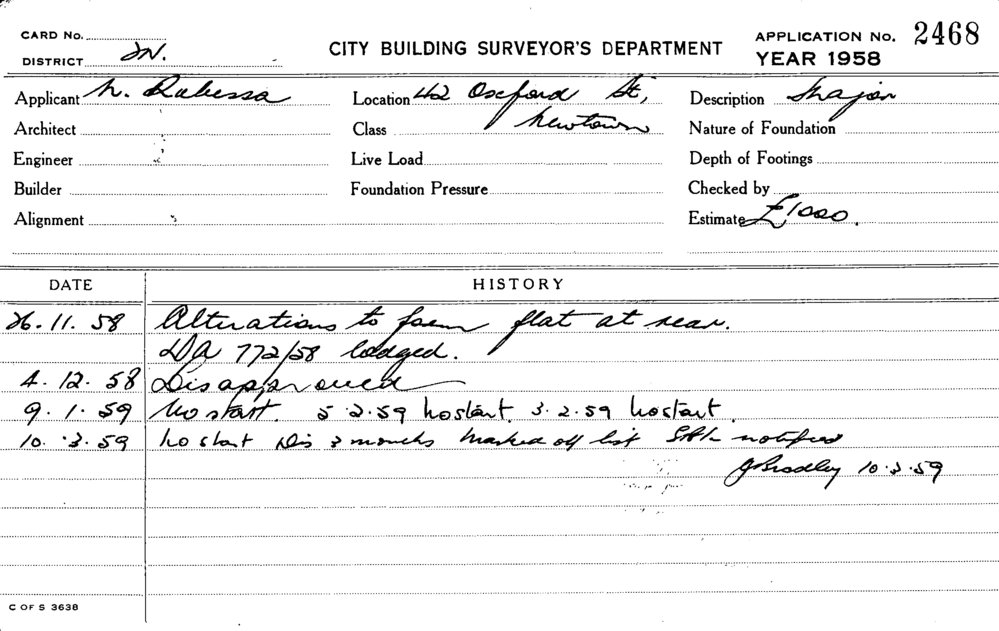 CARD No.
DISTRICT
CITY BUILDING SURVEYOR'S DEPARTMENT
APPLICATION No. 2468
YEAR 1958
Applicant N.
Location 42 Oxford St,
Description Major
Architect
Class Newtown
Nature of Foundation
Engineer
Live Load
Depth of Footings
Builder
Foundation Pressure
Checked by
Alignment
Estimate £1000.
DATE HISTORY
26.11.58 Alterations to form flat at rear.
DA 772/58 lodged.
4.12.58 Disapproved
9.1.59 No start. 5.2.59 No start. 3.2.59 No start.
10.3.59 No start Dis 3 months Marked off list notified
JBradley 10.3.59
C OF S 3638